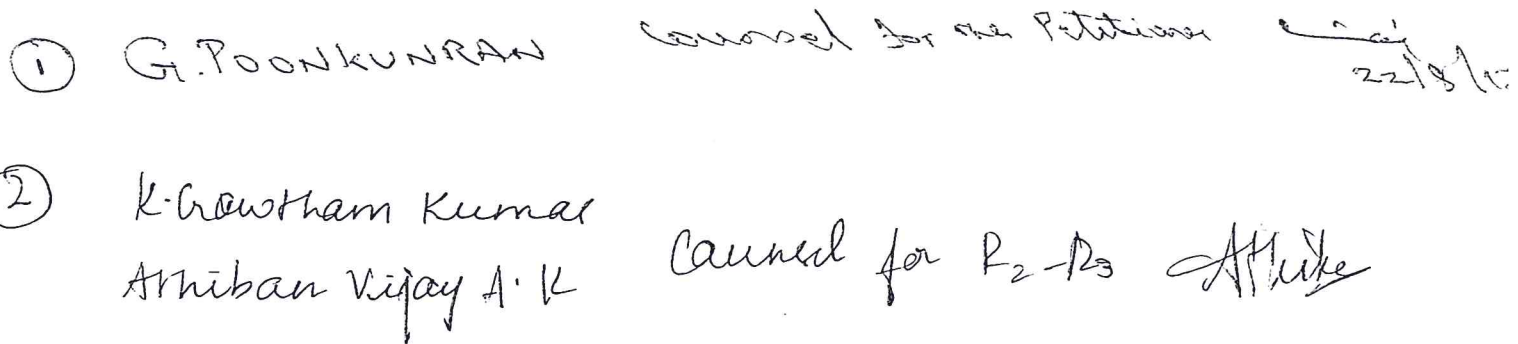 ① G. POONKUNRAN Counsel for the Petitioner
② K. Gowtham Kumar
Athiban Vijay A. K Counsel for R2-R3